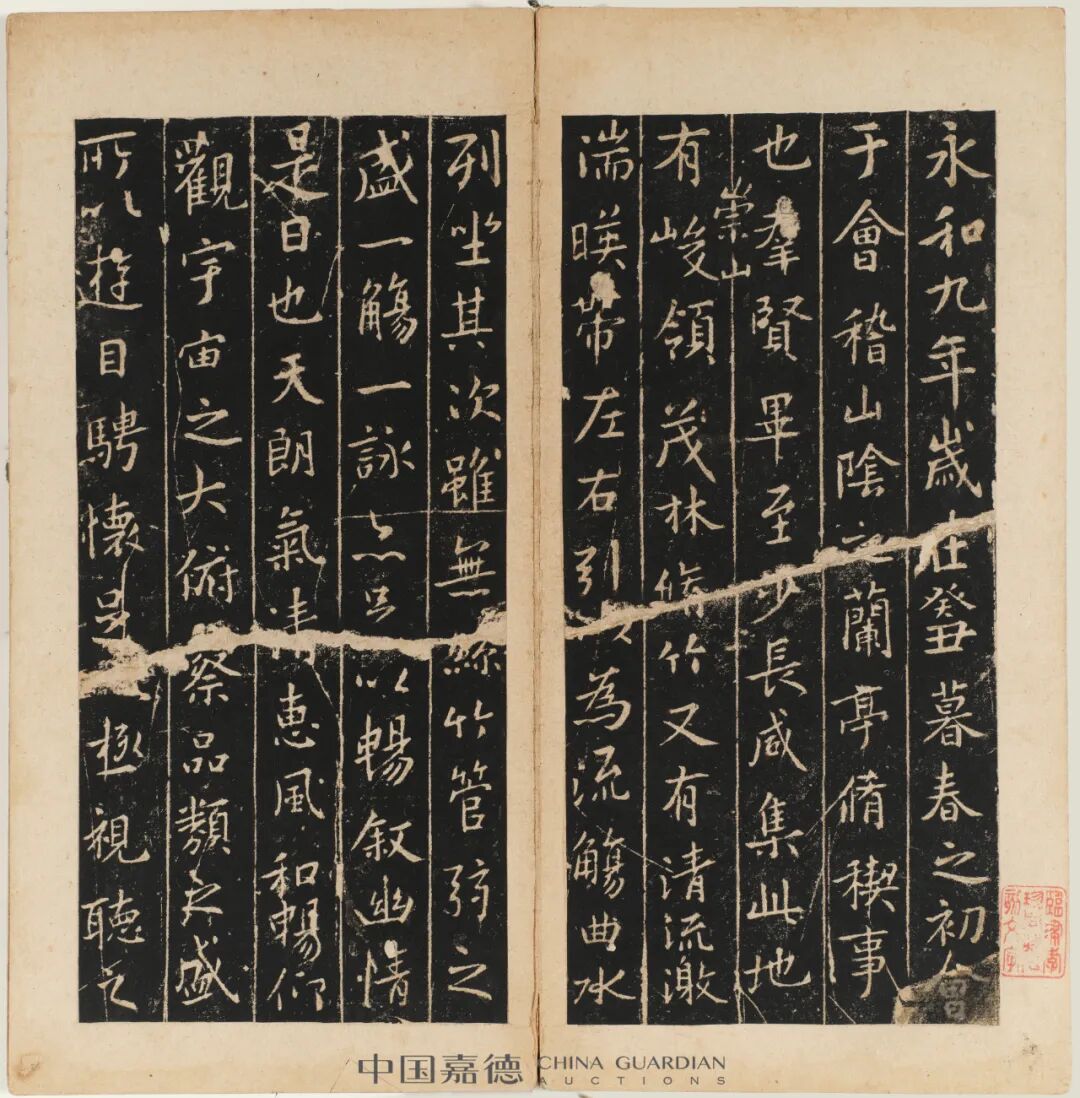 永和九年歲在癸丑暮春之初會
于會稽山陰之蘭亭脩稧事
也羣賢畢至少長咸集此地
有崇山峻領茂林脩竹又有清流激
湍暎帶左右引以為流觴曲水
列坐其次雖無絲竹管弦之
盛一觴一詠亦足以暢叙幽情
是日也天朗氣清惠風和暢仰
觀宇宙之大俯察品類之盛
所以遊目騁懷足極視聽之
中国嘉德 CHINA GUARDIAN
AUCTIONS